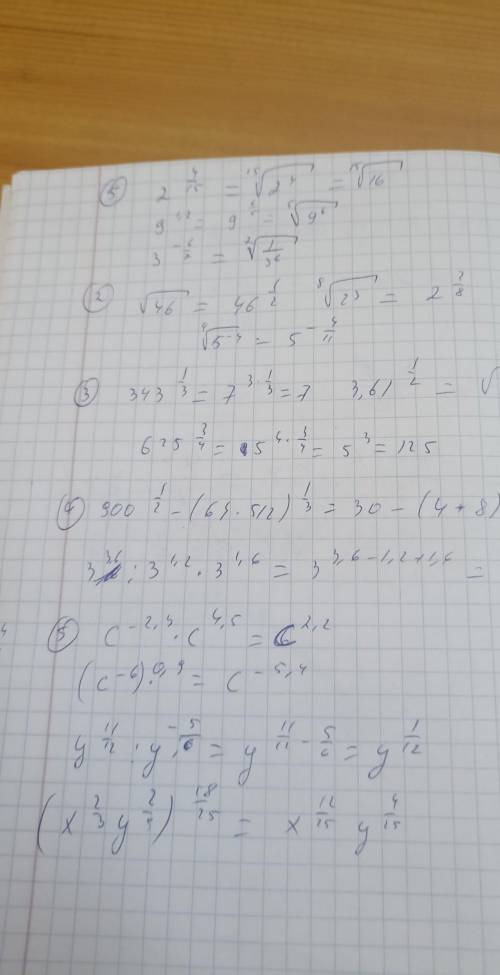 ⑤ 2^{4/15} = ¹⁵√2⁴ = ¹⁵√16
9^{1,2} = 9^{6/5} = ⁵√9⁶
= √(1/3⁶)
② √46 = 46^{1/2} ⁸√2³ = 2^{3/8}
= 5^{-4/11}
③ 343^{1/3} = 7^{3·1/3} = 7 3,61^{1/2} = √
625^{3/4} = 5^{4·3/4} = 5³ = 125
④ 900^{1/2} - (64·512)^{1/3} = 30 - (4+8)
3^{3,6} : 3^{1,2} · 3^{1,6} = 3^{3,6-1,2+1,6} =
⑤ c^{-2,3} · c^{4,5} = c^{2,2}
(c^{-6})^{0,9} = c^{-5,4}
y^{11/12} : y^{-5/6} = y^{11/12 - 5/6} = y^{1/12}
(x^{2/3} y^{2/9})^{18/15} = x^{12/15} y^{4/15}